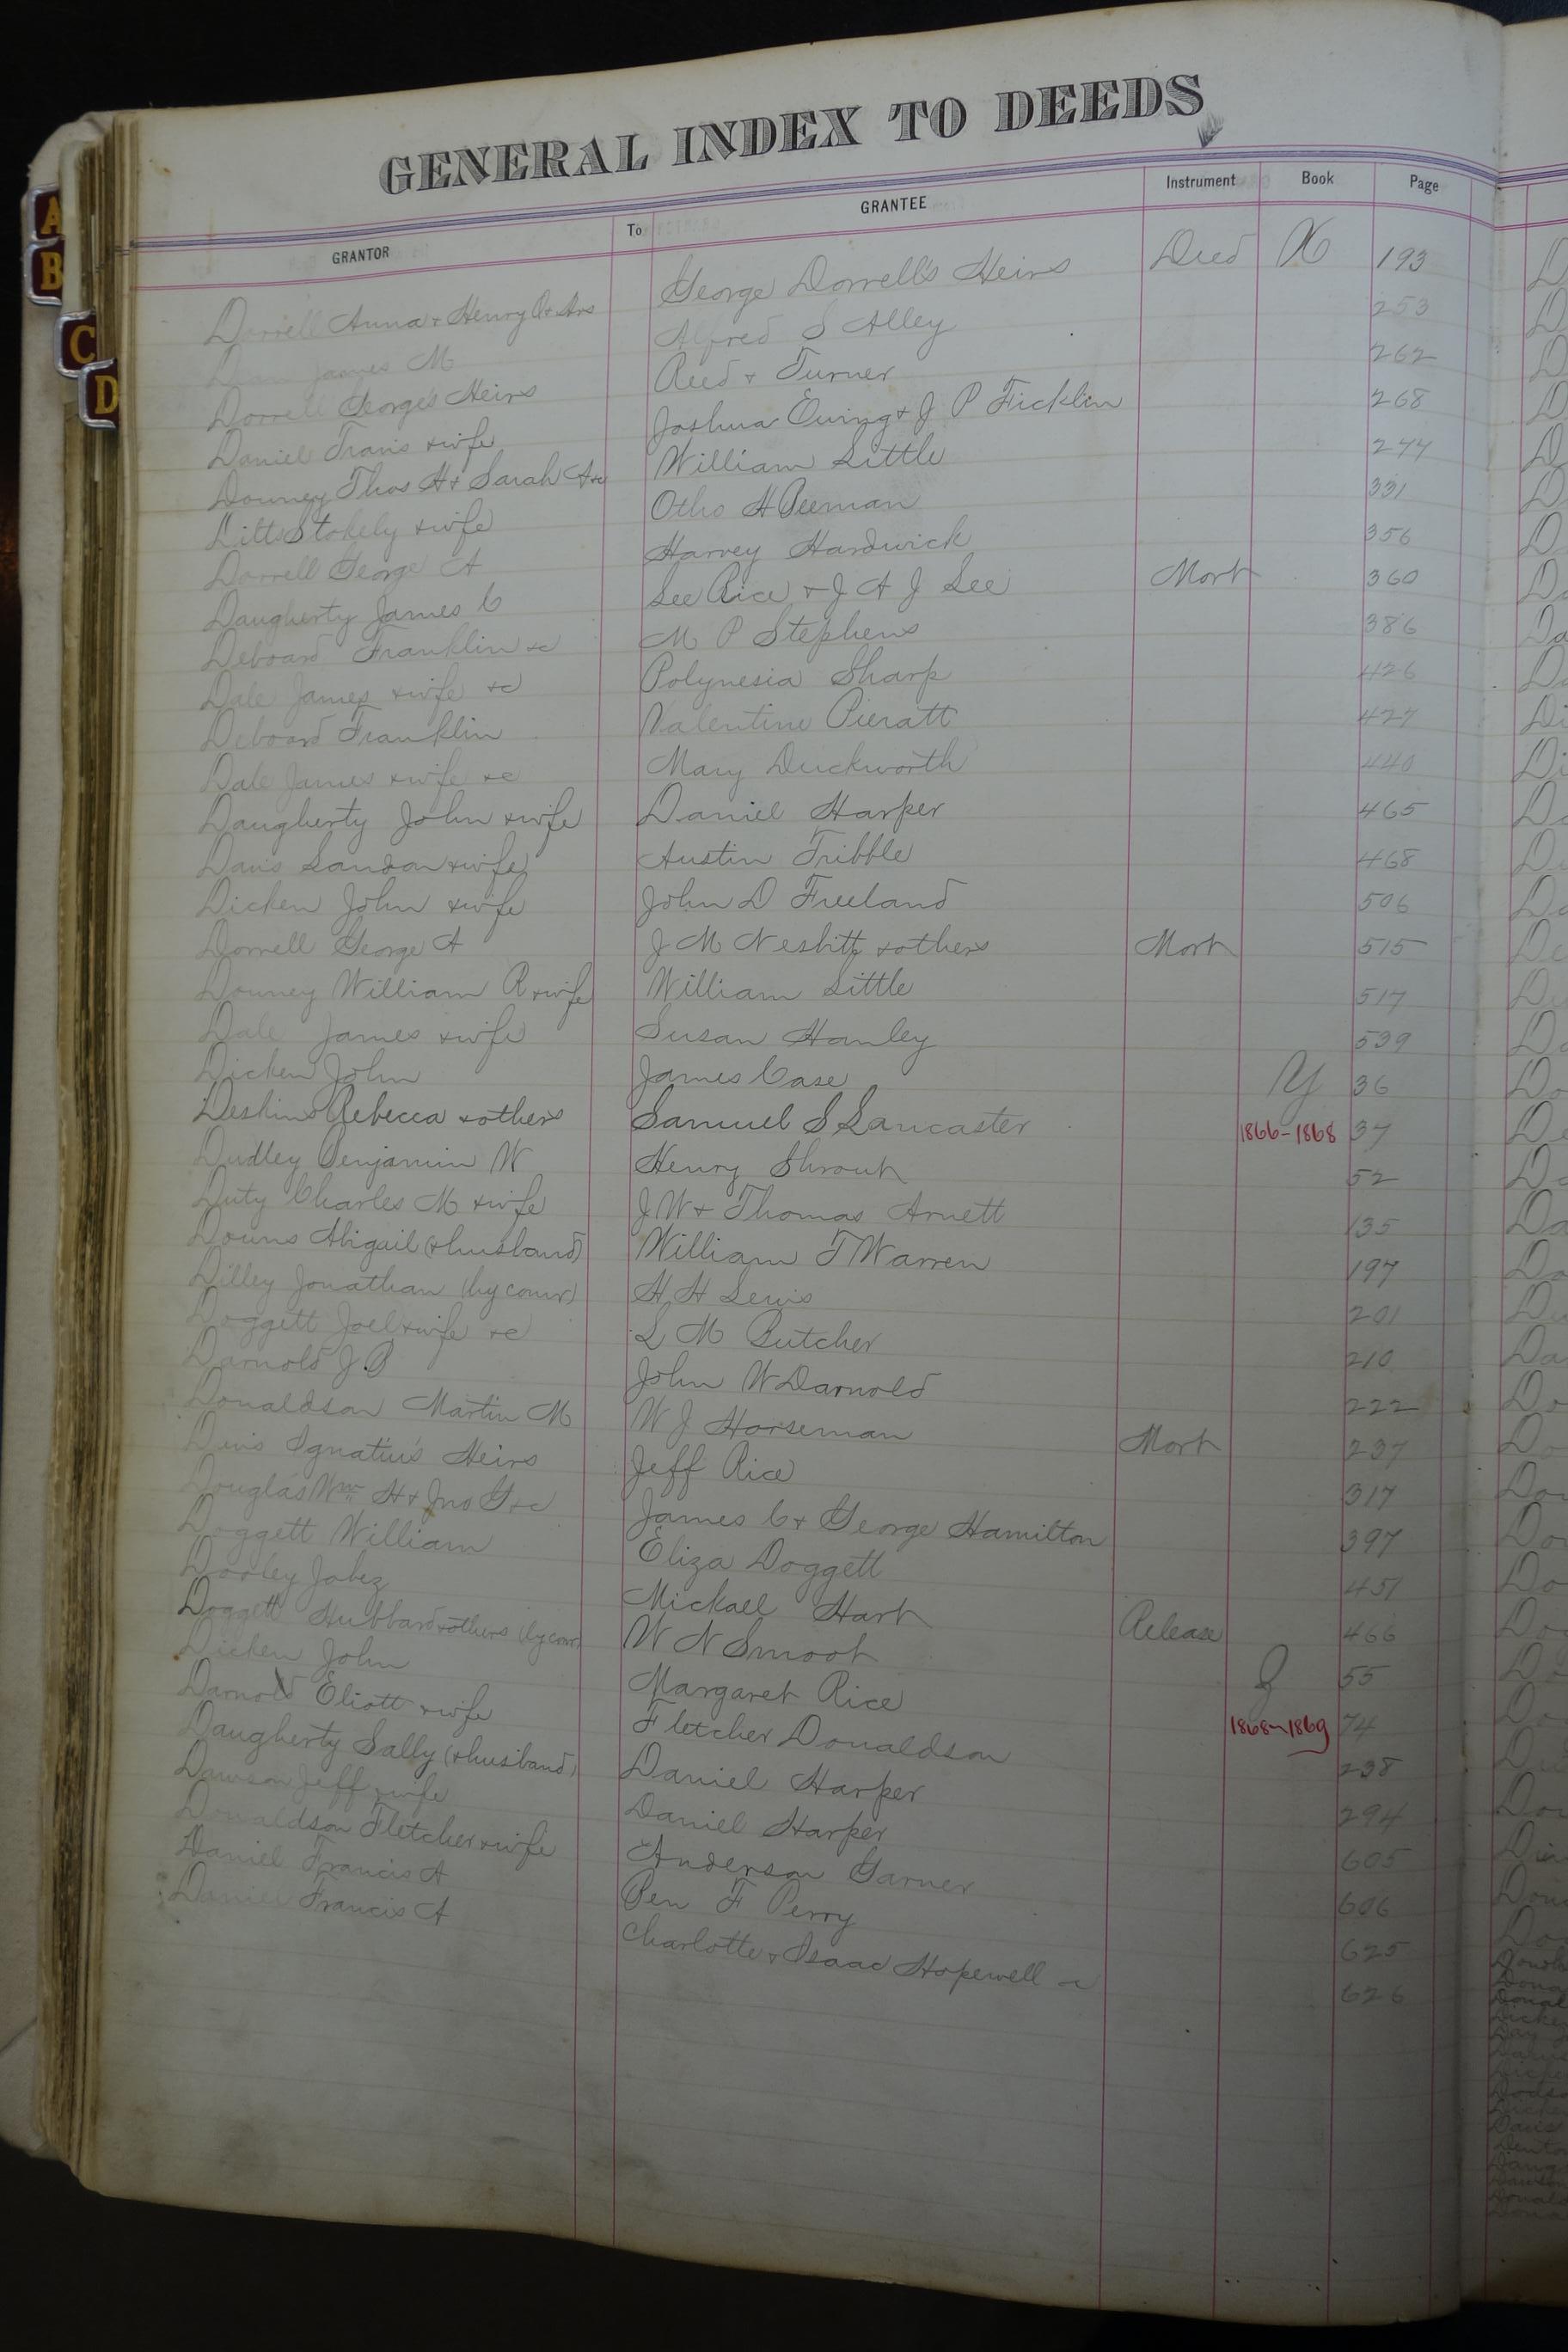 GENERAL INDEX TO DEEDS
GRANTOR To GRANTEE Instrument Book Page
Dorrell Anna & Henry George Dorrell's Heirs Deed X 193
James M Alfred S Alley 253
Dorrell George's Heirs Reed & Turner 262
Daniel Travis & wife Joshua Ewing & J P Ficklin 268
Downey Thos H & Sarah A &c William Little 277
Stokely & wife Otho H Beeman 331
Dorrell George A Harvey Hardwick 356
Daugherty James C Lee Rice & J A J Lee Mort 360
Deboard Franklin &c M P Stephens 386
Dale James & wife &c Polynesia Sharp 426
Deboard Franklin Valentine Pieratt 427
Dale James & wife &c Mary Duckworth 440
Daugherty John & wife Daniel Harper 465
Davis Landon & wife Austin Tribble 468
Dicken John & wife John D Freeland 506
Dorrell George A J M Nesbitt & others Mort 515
Downey William R & wife William Little 517
Dale James & wife Susan Hanley 539
Dicken John James Case Y 36
Deskins Rebecca & others Samuel S Lancaster 1866-1868 37
Dudley Benjamin W Henry Shrout 52
Duty Charles M & wife J W & Thomas Arnett 135
Downs Abigail (& husband) William T Warren 197
Dilley Jonathan (by comr) H H Lewis 201
Doggett Joel & wife &c L M Butcher 210
Darnold J B John W Darnold 222
Donaldson Martin M W J Horseman Mort 237
Ignatius Heirs Jeff Rice 317
Douglas Wm H & Jno G &c James C & George Hamilton 397
Doggett William Eliza Doggett 451
Dooley Jabez Mickael Hart Release 466
Doggett Hubbard & others (by comr) W N Smoot Z 55
Dicken John Margaret Rice 1868-1869 74
Darnold Eliott & wife Fletcher Donaldson 238
Daugherty Sally (& husband) Daniel Harper 294
Dawson Jeff & wife Daniel Harper 605
Donaldson Fletcher & wife Anderson Garner 606
Daniel Francis A Ben F Perry 625
Daniel Francis A Charlotte & Isaac Hopewell &c 626
A
B
C
D